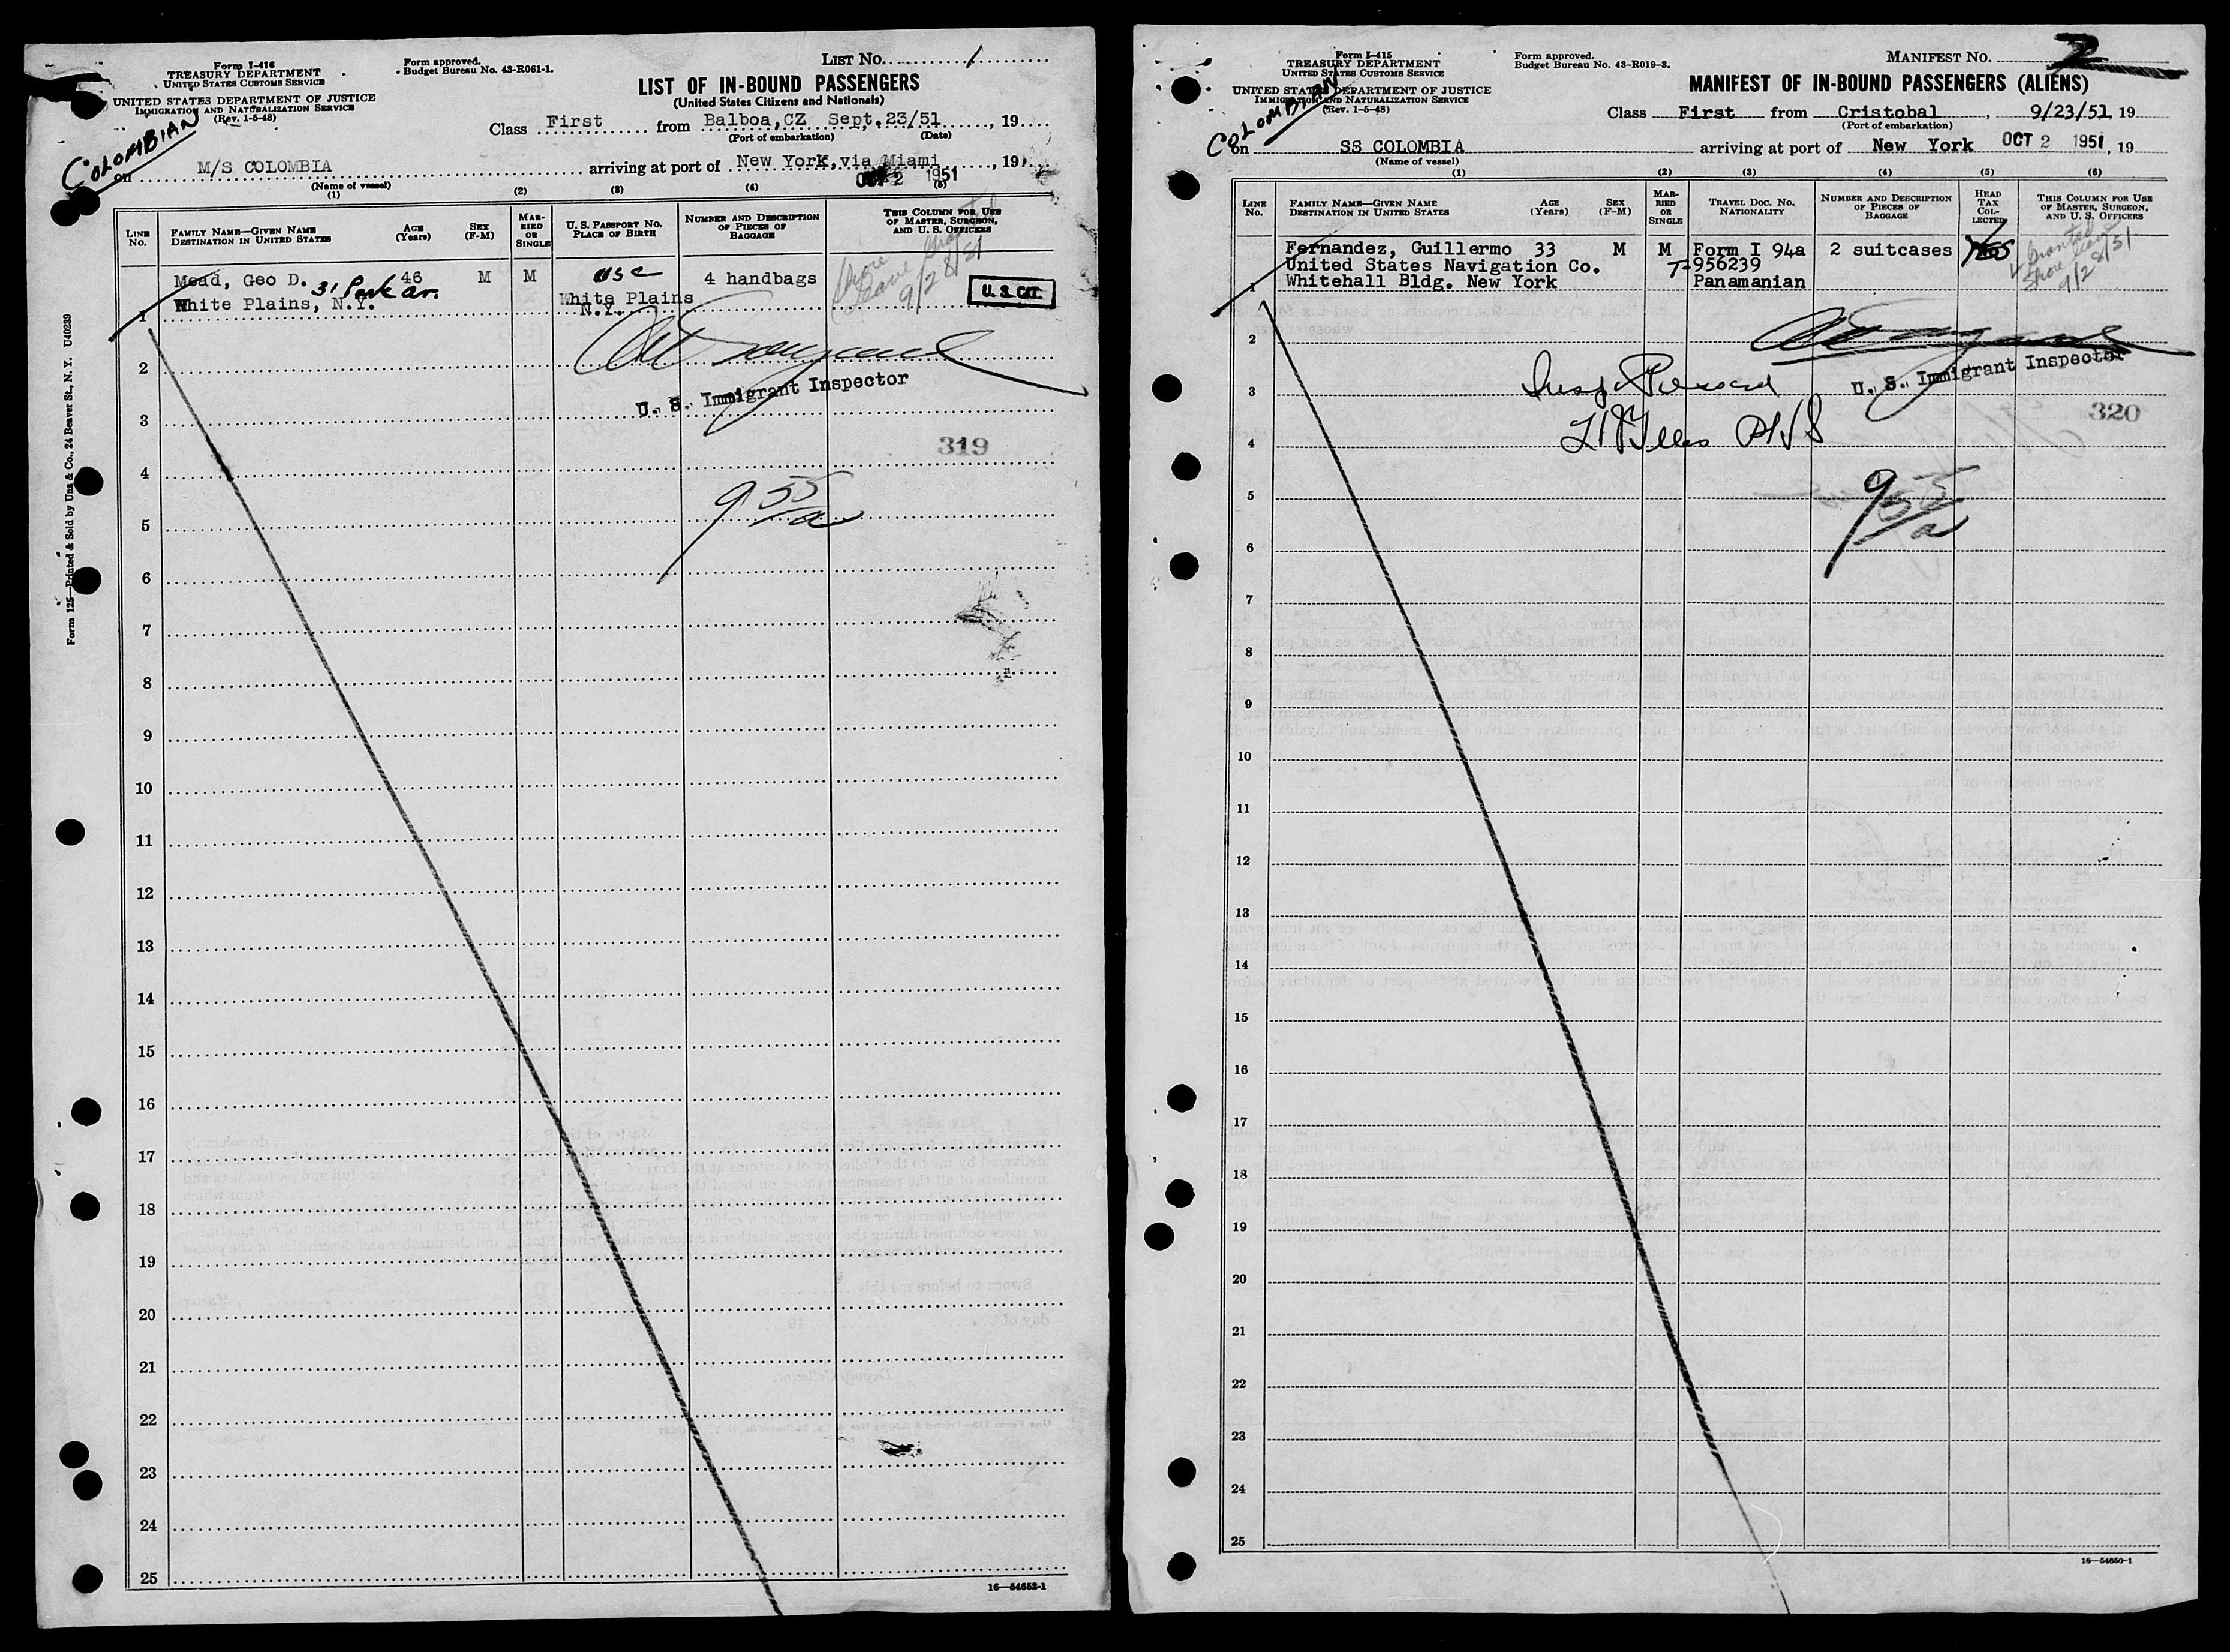 Form I-416
TREASURY DEPARTMENT
UNITED STATES CUSTOMS SERVICE
UNITED STATES DEPARTMENT OF JUSTICE
IMMIGRATION AND NATURALIZATION SERVICE
(Rev. 1-5-48)
Form approved.
Budget Bureau No. 43-R061-1.
LIST NO. 1
LIST OF IN-BOUND PASSENGERS
(United States Citizens and Nationals)
COLOMBIAN
Class First from Balboa,CZ Sept.23/51, 19
(Port of embarkation) (Date)
on M/S COLOMBIA arriving at port of New York,via Miami, 19
(Name of vessel)
OCT 2 1951
(1) (2) (3) (4) (5)
LINE NO.
FAMILY NAME—GIVEN NAME
DESTINATION IN UNITED STATES
AGE (Years)
SEX (F-M)
MARRIED OR SINGLE
U. S. PASSPORT NO.
PLACE OF BIRTH
NUMBER AND DESCRIPTION OF PIECES OF BAGGAGE
THIS COLUMN FOR USE OF MASTER, SURGEON, AND U. S. OFFICERS
Mead, Geo D. 46 M M usc 4 handbags
31 Park av.
White Plains, N.Y. White Plains N.Y.
Shore leave granted 9/28/51
U. S. CIT.
U. S. Immigrant Inspector
319
9 55/a
1
2
3
4
5
6
7
8
9
10
11
12
13
14
15
16
17
18
19
20
21
22
23
24
25
16—54652-1
Form 125—Printed & Sold by Unz & Co., 24 Beaver St., N. Y. U40239
Form I-415
TREASURY DEPARTMENT
UNITED STATES CUSTOMS SERVICE
UNITED STATES DEPARTMENT OF JUSTICE
IMMIGRATION AND NATURALIZATION SERVICE
(Rev. 1-5-48)
Form approved.
Budget Bureau No. 43-R019-3.
MANIFEST NO. 2
MANIFEST OF IN-BOUND PASSENGERS (ALIENS)
COLOMBIAN
Class First from Cristobal, 9/23/51, 19
(Port of embarkation)
on SS COLOMBIA arriving at port of New York OCT 2 1951, 19
(Name of vessel)
(1) (2) (3) (4) (5) (6)
LINE NO.
FAMILY NAME—GIVEN NAME
DESTINATION IN UNITED STATES
AGE (Years)
SEX (F-M)
MARRIED OR SINGLE
TRAVEL DOC. NO.
NATIONALITY
NUMBER AND DESCRIPTION OF PIECES OF BAGGAGE
HEAD TAX COLLECTED
THIS COLUMN FOR USE OF MASTER, SURGEON, AND U. S. OFFICERS
Fernandez, Guillermo 33 M M Form I 94a 2 suitcases Yes
United States Navigation Co. T-956239
Whitehall Bldg. New York Panamanian
Granted Shore leave 9/28/51
U. S. Immigrant Inspector
320
9 55/a
1
2
3
4
5
6
7
8
9
10
11
12
13
14
15
16
17
18
19
20
21
22
23
24
25
16—54650-1